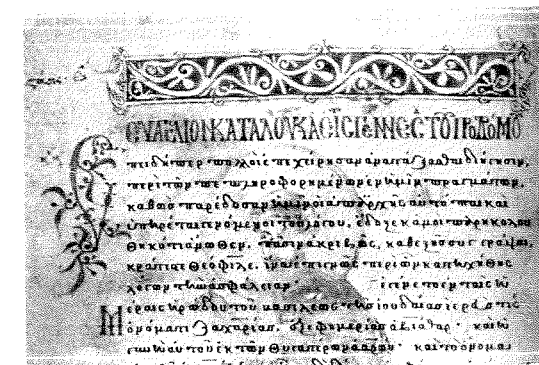 ΕΥΑΓΓΕΛΙΟΝ ΚΑΤΑ ΛΟΥΚΑ ΕΙΣ
Ἐπειδήπερ πολλοὶ ἐπεχείρησαν ἀνατάξασθαι διήγησιν,
περὶ τῶν πεπληροφορημένων ἐν ἡμῖν πραγμάτων,
καθὼς παρέδοσαν ἡμῖν οἱ ἀπαρχῆς αὐτόπται καὶ
ὑπηρέται γενόμενοι τοῦ λόγου, ἔδοξε κἀμοὶ παρηκολου
θηκότι ἄνωθεν, πᾶσιν ἀκριβῶς, καθεξῆς σοι γράψαι,
κράτιστε θεόφιλε, ἵνα ἐπιγνῷς περὶ ὧν κατηχήθης
λόγων τὴν ἀσφάλειαν. ἐγένετο ἐν ταῖς ἡ
Μέραις ἡρώδου τοῦ βασιλέως τῆς ἰουδαίας ἱερεύς τις
ὀνόματι ζαχαρίας, ἐξ ἐφημερίας καὶ ἡ
γυνὴ αὐτοῦ ἐκ τῶν θυγατέρων ἀαρών· καὶ τὸ ὄνομα